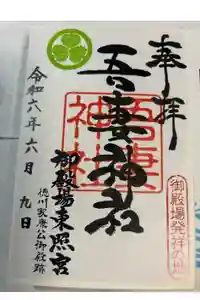 奉拝
吾妻神社
吾妻神社
御殿場発祥の地
御殿場東照宮
徳川家康公御殿跡
令和六年六月九日